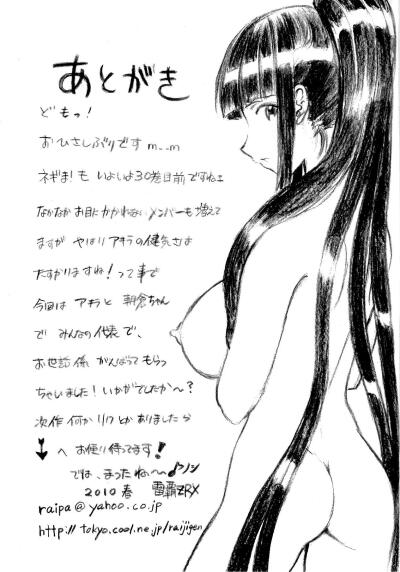 あとがき
どもっ!
おひさしぶりです m__m
ネギま!も いよいよ30巻目前ですねェ
なかなかお目にかかれないメンバーも増えて
ますが やはり アキラの健気さは
たすかりますね!って事で
今回は アキラと 朝倉ちゃん
で みんなの代表で、
お世話係 がんばってもらっ
ちゃいました!いかがでしたか〜?
次作 何か リクとかありましたら
↓へ お便り待ってます!
では、まったねぃ〜〜♪ノシ
2010 春 雷覇ZRX
raipa@yahoo.co.jp
http://tokyo.cool.ne.jp/raijigen